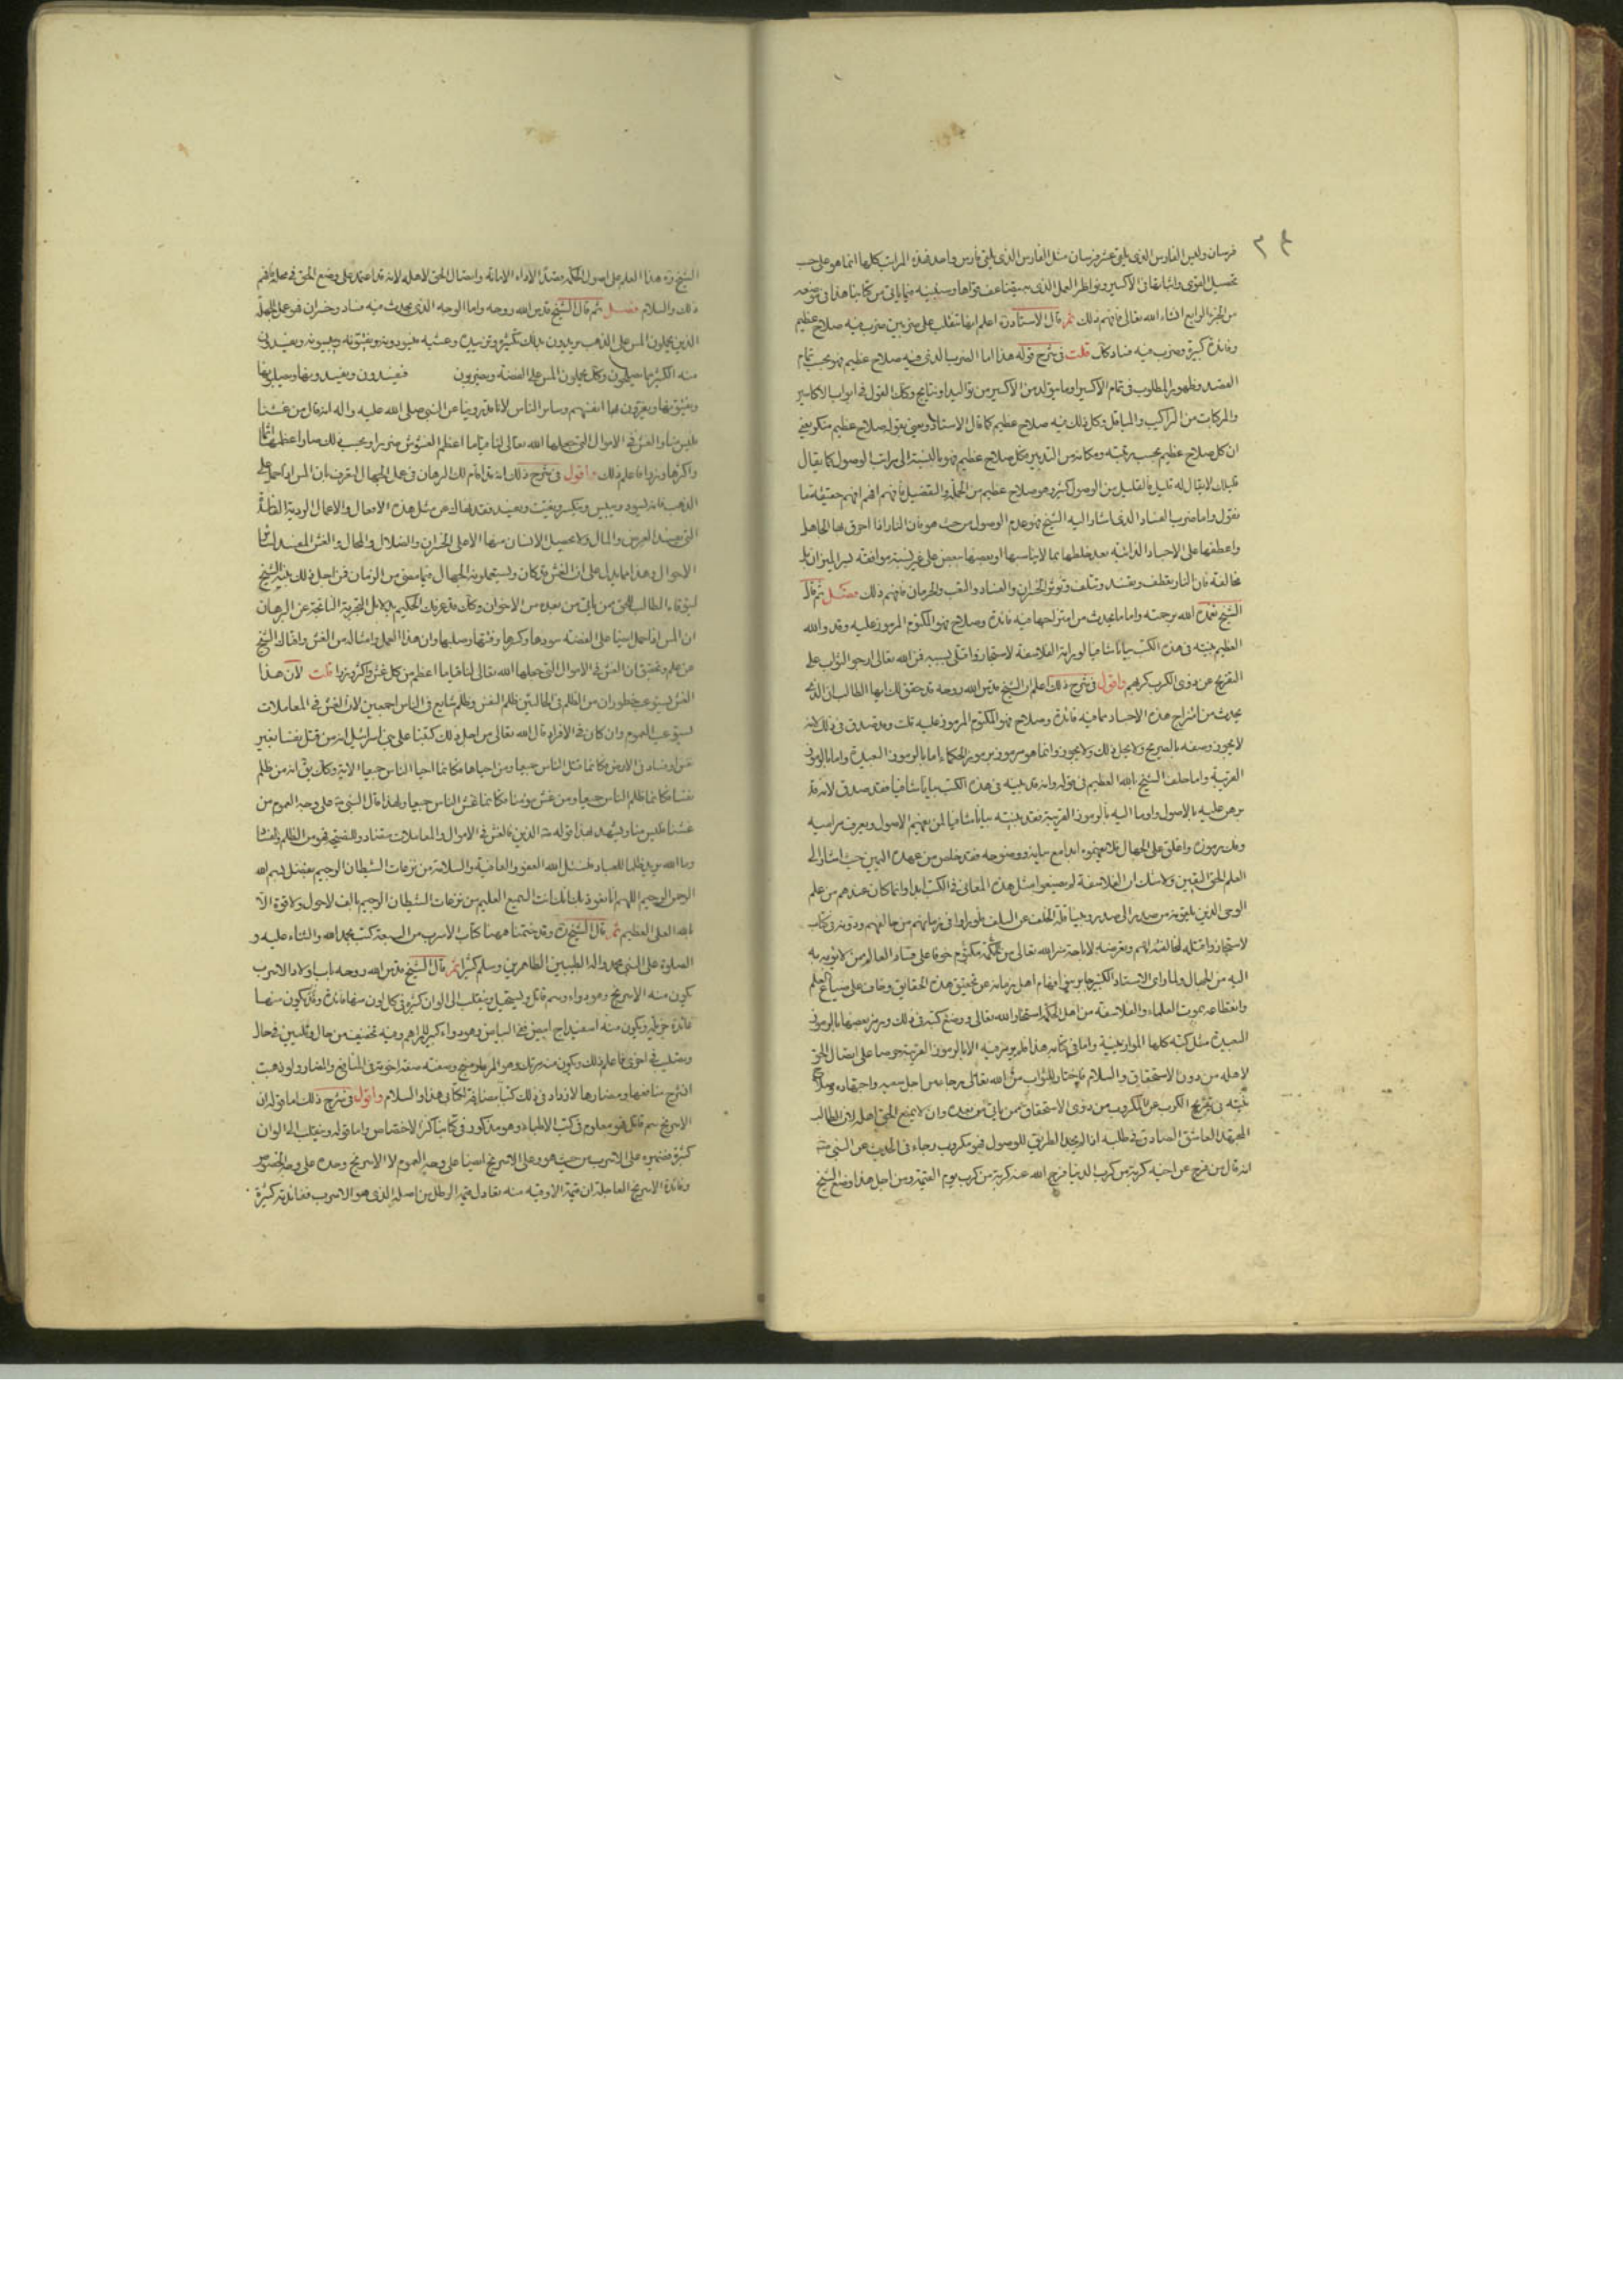 ٣٤
فرسان وليس الفارس الذى يلتقى عشر فرسان مثل الفارس الذى يلتقى فارس واحد فهذه المراتب كلها انما هو على حسب
تحصيل القوى واثباتها فى الاكسير ونواظر العمل الذى به قواها وسنبينه فيما ياتى من كتابنا هذا فى موضعه
من الجزء الرابع انشاء الله تعالى فافهم ذلك ثم قال الاستاد اعلم انها تنقلب على ضربين ضرب فيه صلاح عظيم
وفائدة كبيرة وضرب فيه فساد كل قلت فى شرح قوله هذا اما الضرب الذى فيه صلاح عظيم فهو بحسب تمام
القصد وظهور المطلوب فى تمام الاكسير وما يتولد من الاكسير من تواليد ونتايج وكك القول فى ابواب الاكاسير
والمركبات من التراكيب والمياقل وكل ذلك فيه صلاح عظيم كما قال الاستاد ونعنى بقوله صلاح عظيم منكو يعنى
ان كل صلاح عظيم بحسب رتبته ومكانه من التدبير فكل صلاح عظيم فهو بالنسبة الى مراتب الوصول كما يقال
قليلك لا يقال له قليل فالقليل من الوصول كثير وهو صلاح عظيم من الجملة والتفصيل فافهم افهم حقيقة ما
نقول واما ضرب الفساد الذى اشار اليه الشيخ فهو عدم الوصول من حيث هو فان النار اذا احرق بها الجاهل
واعطفها على الاجساد الذائبة بعد خلطها بما لا يناسبها او بعضها ببعض على غير نسبة موافقة لسر الميزان بل
مخالفة فان النار تعطف وتفسد وتتلف وتورث الخسران والفساد والتعب والحرمان فافهم ذلك فصل ثم قال
الشيخ تغمده الله برحمته واما ما يحدث من امتزاجها فيه فائدة وصلاح فهو المكتوم المرموز عليه وقد والله
العظيم بينته فى هذه الكتب بيانا شافيا لو يراه الفلاسفة لاستجازوا قتلى بسببه فمن الله تعالى ارجو الثواب على
التفريج عن ذوى الكرب كربهم واقول فى شرح ذلك اعلم ان الشيخ قدس الله روحه قد حقق لك ايها الطالب ان الذى
يحدث من امتزاج هذه الاجساد مما فيه فائدة وصلاح فهو المكتوم المرموز عليه قلت وقد صدق فى ذلك لانه
لا يجوز وصفه بالصريح ولا يحل ذلك ولا يجوز وانما هو مرموز برموز الحكماء اما بالرموز البعيدة واما بالرموز
القريبة واما حلف الشيخ بالله العظيم فى قوله وانه قد بينه فى هذه الكتب بيانا شافيا فقد صدق لانه قد
برهن عليه بالاصول واوما اليه بالرموز القريبة فقد بينته بيانا شافيا لمن يفهم الاصول ويعرف مراميه
وفك رموزه واغلق على الجهال فلا يفهموه ابدا مع بيانه ووضوحه فقد خلص من عهدة اليمين حيث اشار الى
العلم الحق اليقين ولا شك ان الفلاسفة لم يضعوا مثل هذه المعانى فى الكتب ابدا وانما كان عندهم من علم
الوحى الذين يلقونه من صدر الى صدر وحيا نقله الخلف عن السلف فلو راوا فى زمانهم من خالفهم ودونه فى كتاب
لاستجازوا قتله لمخالفته لهم وتعرضه لاباحة سر الله تعالى من حكمة مكتوم خوفا على فساد العالم من لا يؤبه به
اليه من الجهال ولما راى الاستاد الكبير جابر نبى افهام اهل زمانه عن تحقيق هذه الحقايق وخاف على ضياع العلم
وانقطاعه بموت العلماء والفلاسفة من اهل الحكمة استخار الله تعالى ووضع كتبه فى ذلك ورمز بعضها بالرموز
البعيدة مثل كتبه كلها الموازينية واما فى كتابه هذا فلم يرمز فيه الا بالرموز القريبة حرصا على ايصال الحق
لاهله من دون الاستحقاق والسلام فاختار الثواب من الله تعالى ورجاءه من اجل سعيه واجتهاده وصلاح
نيته فى تفريج الكرب عن المكروب من ذوى الاستحقاق ممن ياتى من بعده وان لا يمنع الحق اهله لان الطالب
المجتهد العاشق الصادق فى طلبه اذا لم يجد الطريق للوصول فهو مكروب وجاء فى الحديث عن النبى
انه قال من فرج عن اخيه كربة من كرب الدنيا فرج الله عنه كربة من كرب يوم القيمة ومن اجل هذا وضع الشيخ
الشيخ هذا العلم على اصول الحكمة قصد الاداء الامانة وايصال الحق لاهله لانه قد اعتمد على وضع الحق فى محله فافهم
ذلك والسلام فصل ثم قال الشيخ قدس الله روحه واما الوجه الذى يحدث فيه فساد وخسران فهو عمل الجهلة
الذين يحملون المس على الذهب يريدون بذلك تكثيره وتزييده وعشيه فيسودونه ويفتقونه وييبسونه ويفسدون
منه الكثير بما يعملون وكك يحملون المس على الفضة ويضربون فيفسدون ويفسدونها ويصلبونها
ويفتقونها ويغرون بها انفسهم وسائر الناس لانا قد روينا عن النبى صلى الله عليه واله انه قال من غشنا
فليس منا والغش فى الاموال التى جعلها الله تعالى لنا قياما اعظم الغشوش ضررا وبحسب ذلك صار اعظمها اثما
واكبرها وزرا فاعلم ذلك واقول فى شرح ذلك انه قد اقام لك البرهان فى عمل الجهال المعرف بان المس اذا حمل على
الذهب فانه يسود وييبس ويتكسر ويتفتت ويفسد فقد نهاك عن مثل هذه الافعال والاعمال الردية الظالمة
التى تفسد العرض والمال ولا يحصل الانسان منها الا على الخسران والضلال والمحال والغش المفسد لسائر
الاحوال وهذا مما يدل على ان الغش قد كان ويستعملونه الجهال فيما مضى من الزمان فمن اجل ذلك نبه الشيخ
لنتوقاه الطالب الحق ممن ياتى من بعده من الاخوان وكك قد عرفك الحكيم بدلايل التجربة الناتجة عن البرهان
ان المس اذا حمل ايضا على الفضة سودها وكسرها وفتقها وصلبها وان هذا العمل وامثاله من الغش وافاك الشيخ
عن علم وتحقيق ان الغش فى الاموال التى جعلها الله تعالى لنا قياما اعظم من كل غش واكبر وزرا قلت لان هذا
الغش يستوعب خطوران من الظلم فى الحالتين ظلم النفس وظلم شايع فى الناس اجمعين لان الغش فى المعاملات
يستوعب العموم وان كان فى الافراد قال الله تعالى من اجل ذلك كتبنا على بنى اسرائيل انه من قتل نفسا بغير
نفس او فساد فى الارض فكانما قتل الناس جميعا ومن احياها فكانما احيا الناس جميعا الاية وكك يق انه من ظلم
نفسا فكانما ظلم الناس جميعا ومن غش مؤمنا فكانما غش الناس جميعا ولهذا قال النبى على وجه العموم من
غشنا فليس منا ويشهد لهذا قوله الدين فالغش فى الاموال والمعاملات متضاد وللنصيحة فهو من الظلم والفساد
وما الله يريد ظلما للعباد فنسئل الله العفو والعافية والسلامة من نزغات الشيطان الرجيم بفضل بسم الله
الرحمن الرحيم اللهم انا نعوذ بك بكلمات السميع العليم من نزغات الشيطان الرجيم بالف لاحول ولا قوة الا
بالله العلى العظيم ثم قال الشيخ وقد ختمنا ههنا كتاب الاسرب من السبعة كتب بحمد الله والثناء عليه و
الصلوة على النبى محمد واله الطيبين الطاهرين وسلم كثيرا ثم قال الشيخ قدس الله روحه باب اولاد الاسرب
يكون منه الاسرنج وهو دواء وسم قاتل ويستحيل وينقلب الى الوان كثيرة فى كل لون منها فائدة وقد يكون منها
فائدة جزئية ويكون منه اسفيداج ابيض نقى البياض وهو دواء كبير للمراهم وفيه تجفيف من حال وتليين فى حال
وينقلب فى اخرى فاعلم ذلك ويكون منه مرتك وهو المرداسنج وصفته صفة اخوته فى المنافع والمضار ولو ذهبت
اشرح منافعها ومضارها لازداد فى ذلك كتبا مضافة الى كتابى هذا والسلام واقول فى شرح ذلك اما قوله ان
الاسرنج سم قاتل فهو معلوم فى كتب الاطباء وهو مذكور فى كتابنا كنز الاختصاص واما قوله وينقلب الى الوان
كثيرة فضميره على الاسرب من حيث هو وعلى الاسرنج ايضا على وجه العموم لا الاسرنج وحده على وجه الخصوص
وفائدة الاسرنج العاجلة ان قيمة الاوقية منه تعادل قيمة الرطل من اصله الذى هو الاسرب ففائدته كثيرة